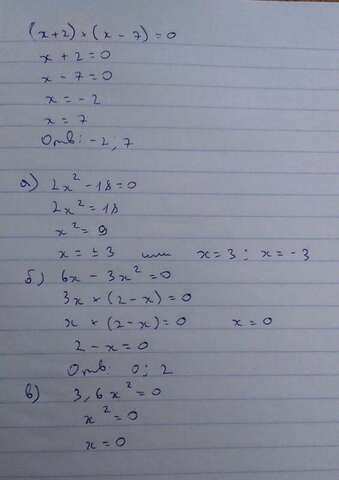 (x+2)*(x-7)=0
x+2=0
x-7=0
x=-2
x=7
Отв: -2; 7
а) 2x²-18=0
2x²=18
x²=9
x=±3 или x=3; x=-3
б) 6x-3x²=0
3x*(2-x)=0
x*(2-x)=0 x=0
2-x=0
Отв: 0; 2
в) 3,6x²=0
x²=0
x=0